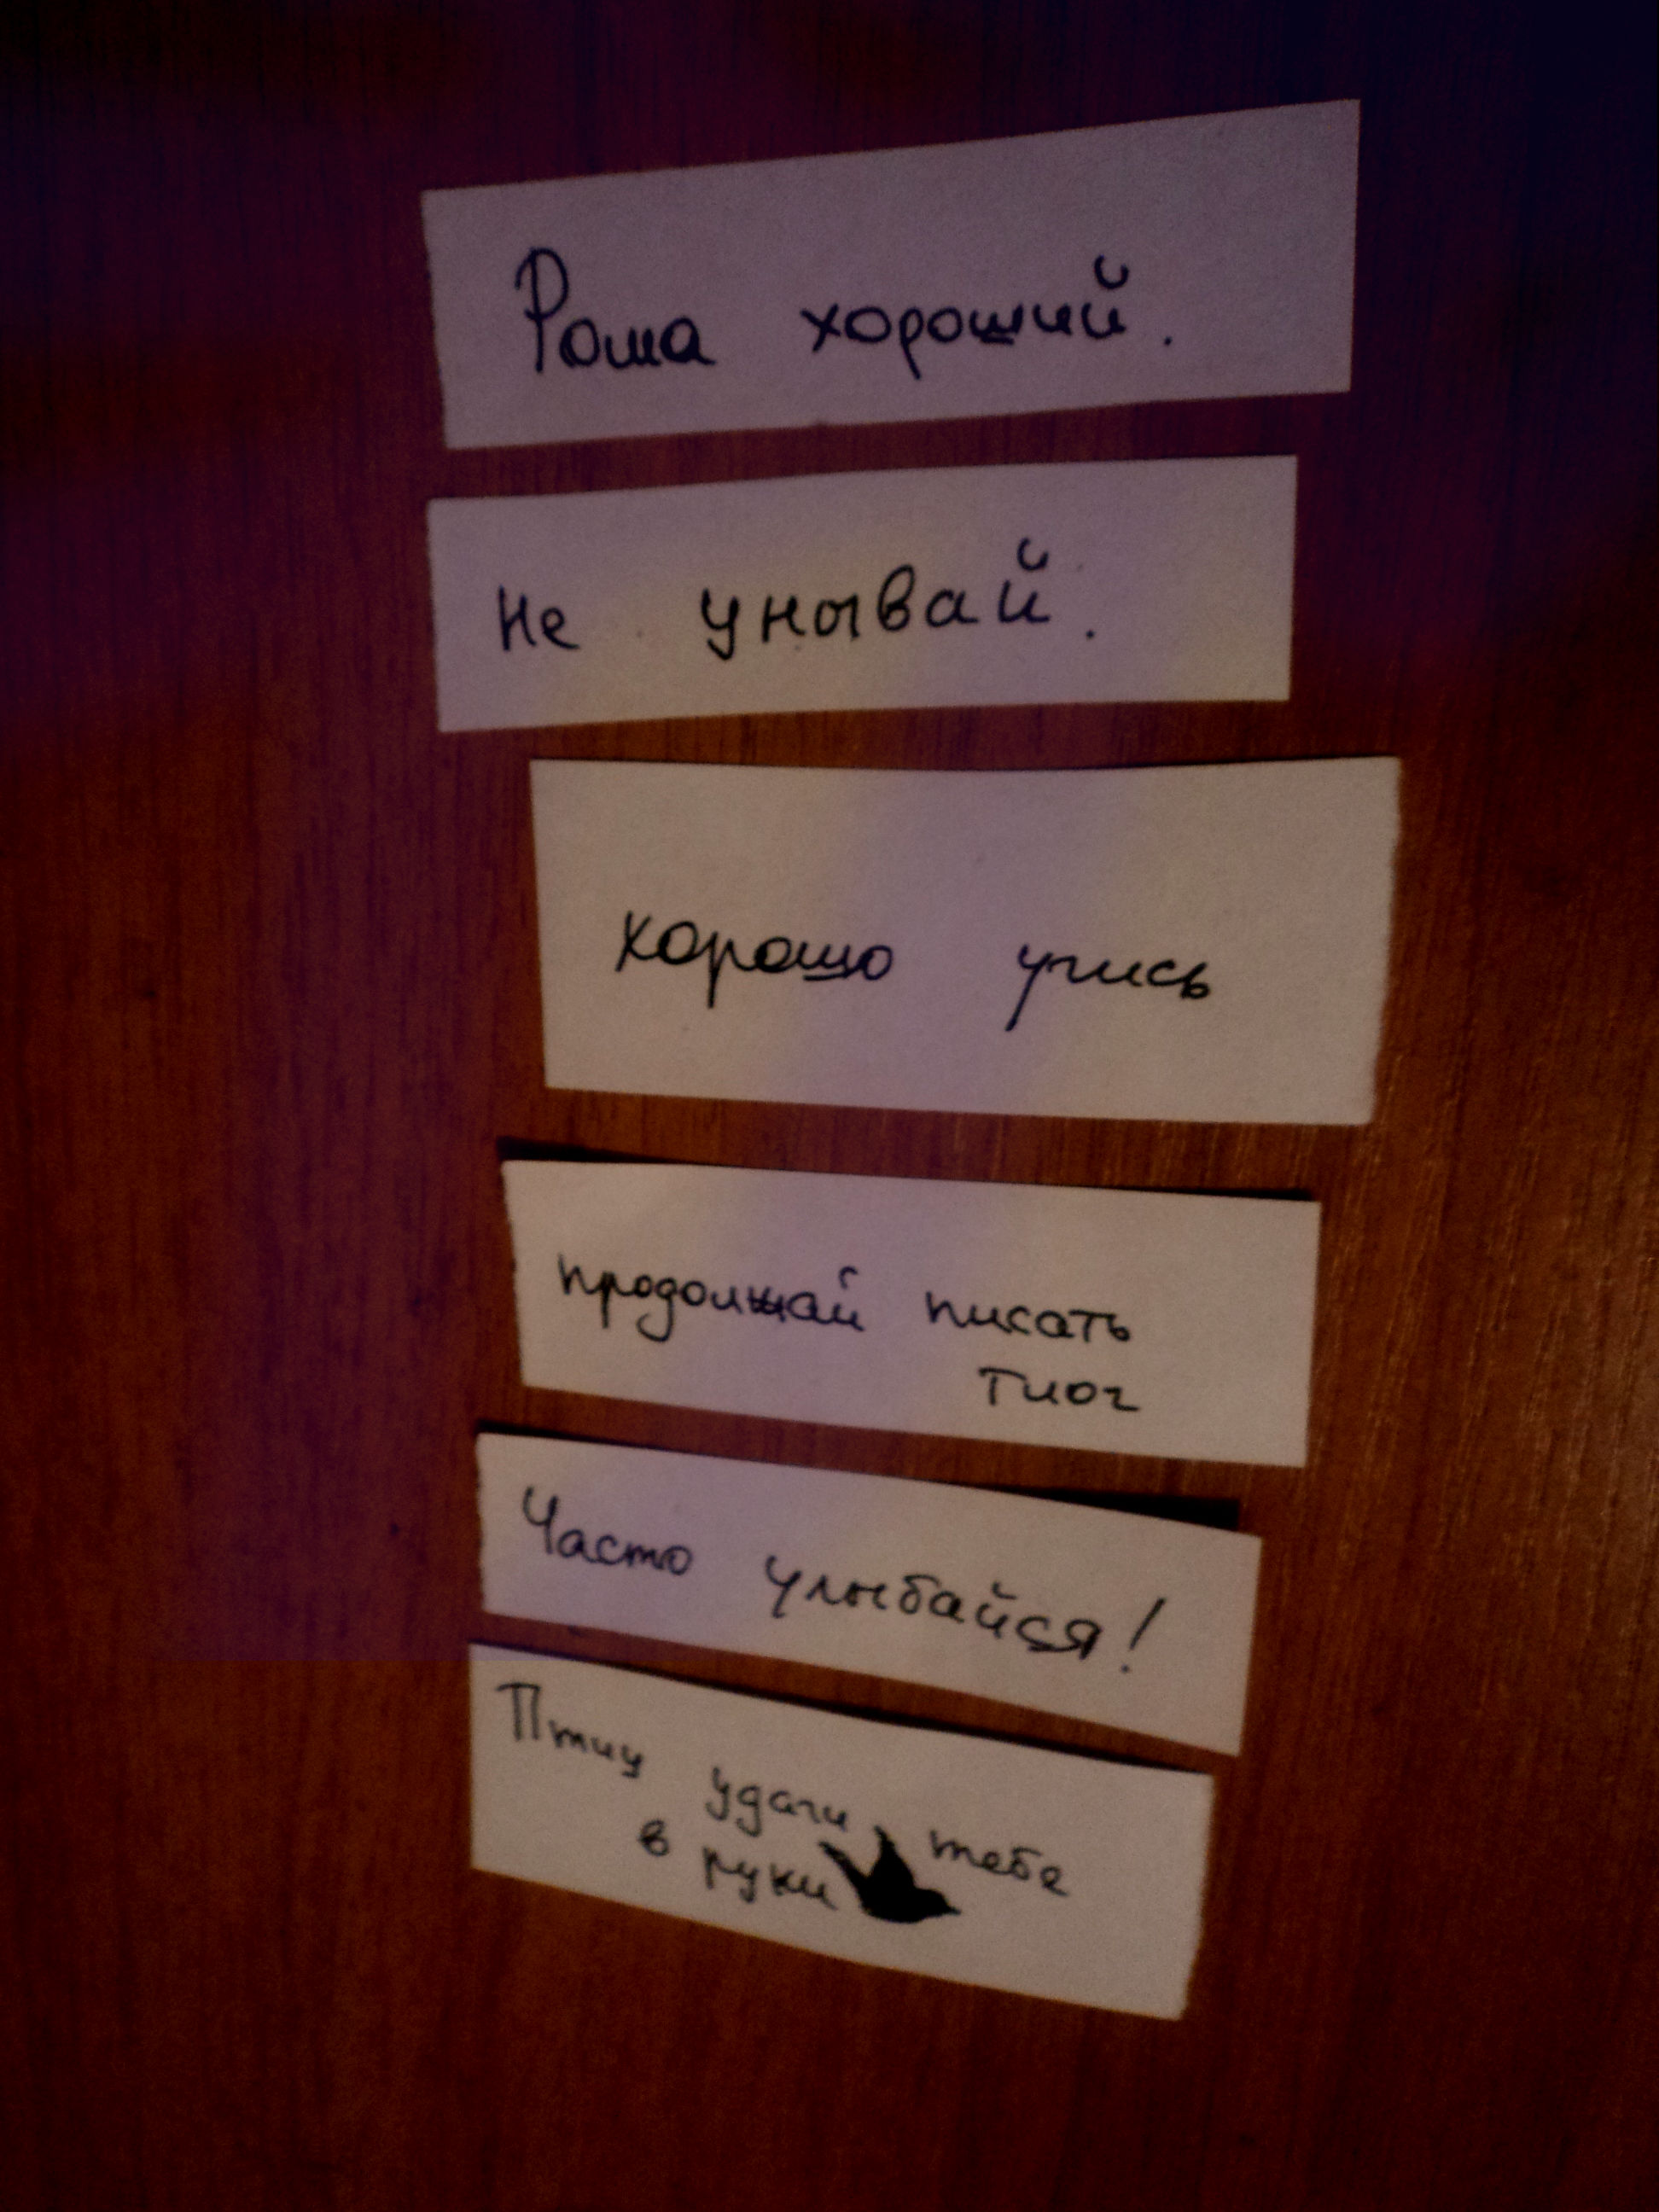 Роша хороший.
Не унывай.
хорошо учись
продолжай писать
тиог
Часто улыбайся!
Птицу удачи тебе
в руки